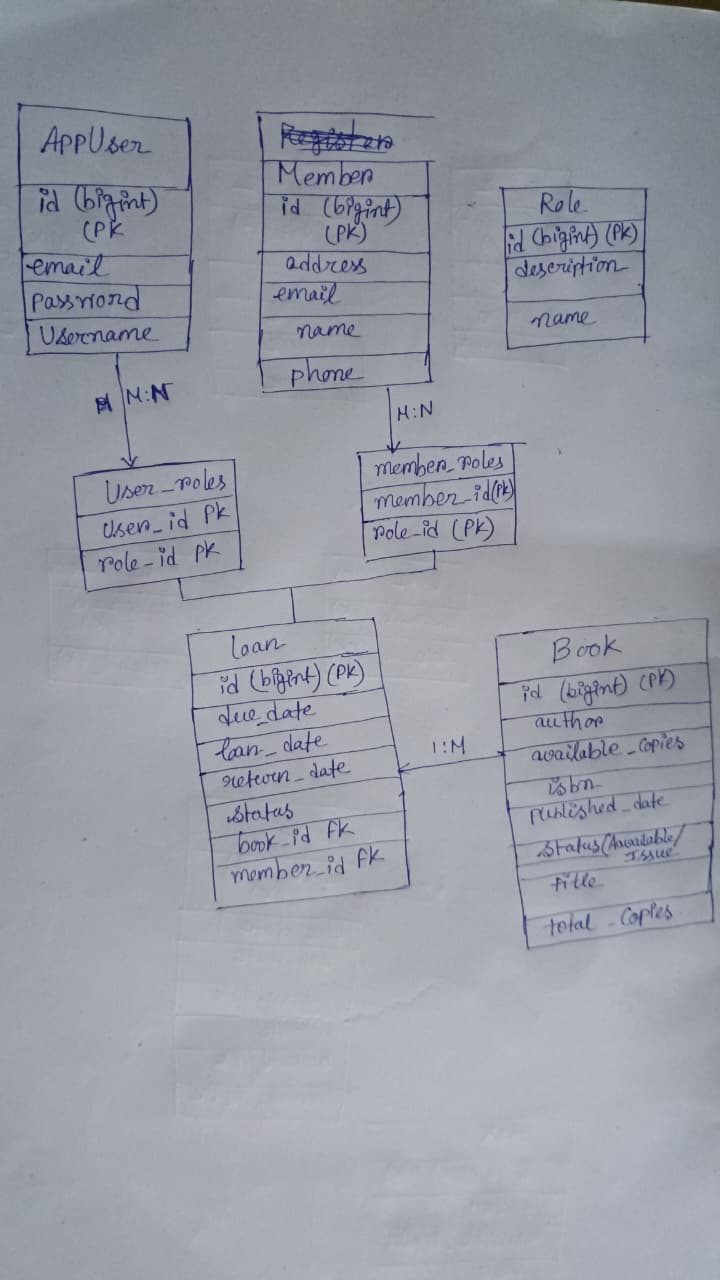 AppUser
id (bigint)
(PK
email
password
Username
Register
Member
id (bigint)
(PK)
address
email
name
phone
Role
id (bigint) (PK)
description
name
M:N
M:N
User_roles
user_id PK
role_id PK
member_roles
member_id(PK)
role_id (PK)
loan
id (bigint) (PK)
due_date
loan_date
return_date
status
book_id fk
member_id fk
1:M
Book
id (bigint) (PK)
author
available_copies
isbn
published_date
status(Aavailable/
Issue
title
total_copies